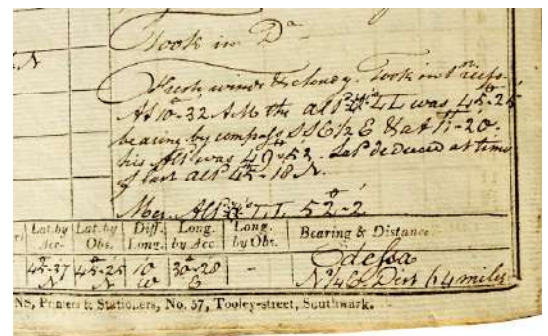 Took in Do
N
Fresh winds & cloudy. Took in 1st reefs.
At 10-32 AM the alt L L was 45-25
bearing by compass SSE ½ E & at 11-20
his Alt was 49-52. Lat deduced at time
of last alt 45-18 N.
Mer. Alt L L 52-2
Lat. by Acc. Lat. by Obs. Diff. Long. Long. by Acc. Long. by Obs. Bearing & Distance
45-37 N 45-25 N 10 W 30-28 E - Odessa
Dist 64 miles
NS, Printers & Stationers, No. 57, Tooley-street, Southwark.